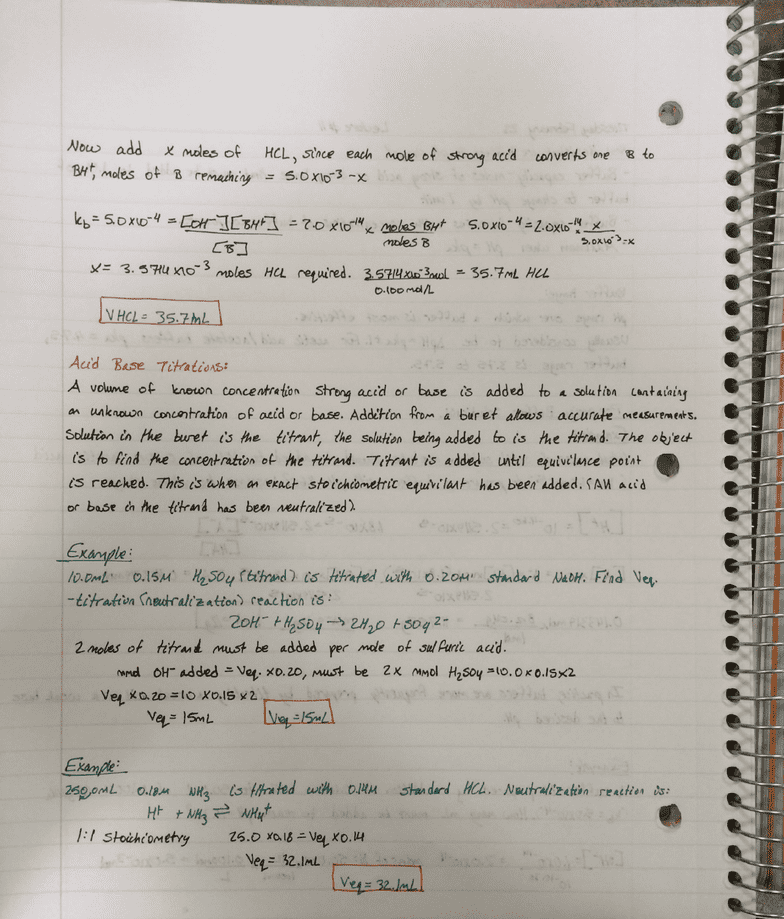 Now add x moles of HCL, since each mole of strong acid converts one B to
BH⁺, moles of B remaining = 5.0x10⁻³ -x
kb = 5.0x10⁻⁴ = [OH⁻][BH⁺]/[B] = 2.0 x10⁻¹⁴ x moles BH⁺/moles B 5.0x10⁻⁴ = 2.0x10⁻¹⁴ x x/5.0x10⁻³-x
x = 3.5714 x10⁻³ moles HCL required. 3.5714x10⁻³mol/0.100 mol/L = 35.7mL HCL
VHCL = 35.7mL
Acid Base Titrations:
A volume of known concentration strong acid or base is added to a solution containing
an unknown concentration of acid or base. Addition from a buret allows accurate measurements.
Solution in the buret is the titrant, the solution being added to is the titrand. The object
is to find the concentration of the titrand. Titrant is added until equivilance point
is reached. This is when an exact stoichiometric equivilant has been added. (All acid
or base in the titrand has been neutralized).
Example:
10.0mL 0.15M H₂SO₄ (titrand) is titrated with 0.20M standard NaOH. Find Veq.
-titration (neutralization) reaction is:
2OH⁻ + H₂SO₄ → 2H₂O + SO₄²⁻
2 moles of titrand must be added per mole of sulfuric acid.
mmol OH⁻ added = Veq. x0.20, must be 2x mmol H₂SO₄ = 10.0 x 0.15x2
Veq x0.20 = 10 x0.15 x2
Veq = 15mL Veq = 15mL
Example:
250,0mL 0.18M NH₃ is titrated with 0.14M standard HCL. Neutralization reaction is:
H⁺ + NH₃ ⇌ NH₄⁺
1:1 Stoichiometry 25.0 x0.18 = Veq x0.14
Veq = 32.1mL
Veq = 32.1mL